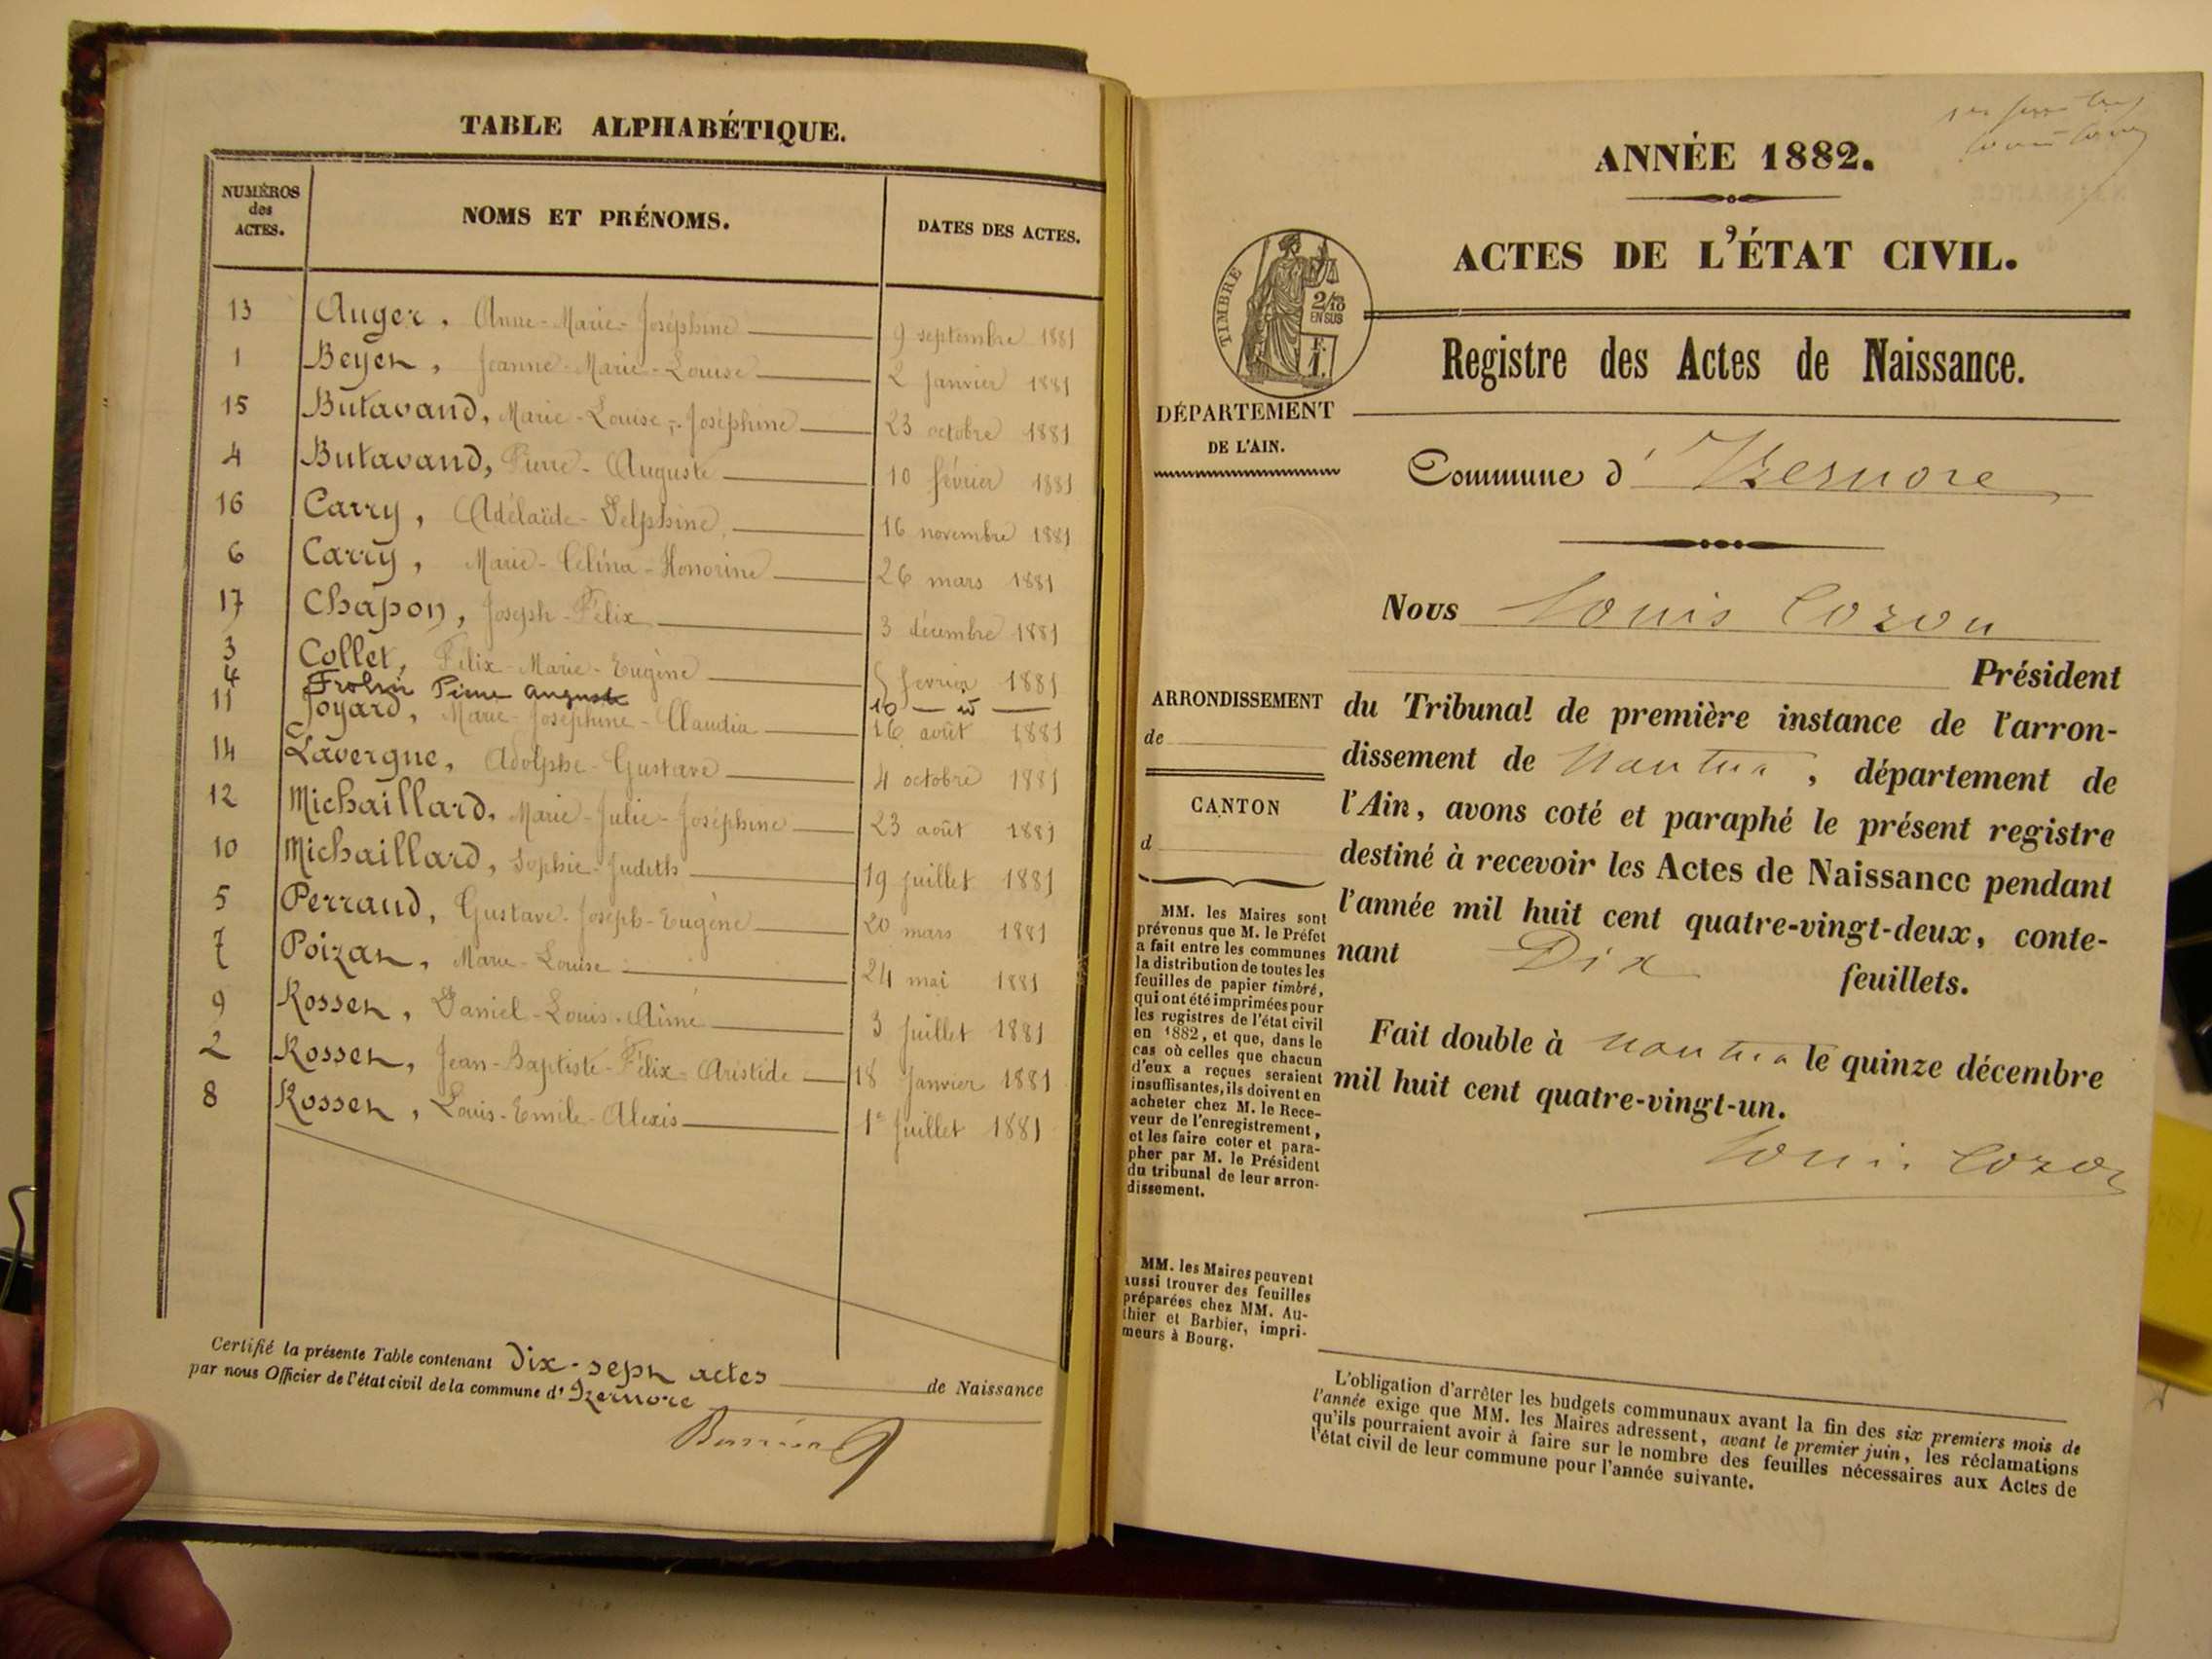 TABLE ALPHABÉTIQUE.
NUMÉROS des ACTES. NOMS ET PRÉNOMS. DATES DES ACTES.
13 Auger, Anne-Marie-Joséphine 9 septembre 1881
1 Beyer, Jeanne-Marie-Louise 2 janvier 1881
15 Butavand, Marie-Louise-Joséphine 23 octobre 1881
4 Butavand, Pierre-Auguste 10 février 1881
16 Carry, Adélaïde-Delphine 16 novembre 1881
6 Carry, Marie-Célina-Honorine 26 mars 1881
17 Chapon, Joseph-Félix 3 décembre 1881
3 Collet, Félix-Marie-Eugène 5 février 1881
4 Pierre auguste 10 — id —
11 Joyard, Marie-Joséphine-Claudia 16 août 1881
14 Lavergne, Adolphe-Gustave 4 octobre 1881
12 Michaillard, Marie-Julie-Joséphine 23 août 1881
10 Michaillard, Sophie-Judith 19 juillet 1881
5 Perraud, Gustave-Joseph-Eugène 20 mars 1881
7 Poizat, Marie-Louise 24 mai 1881
9 Rosset, Daniel-Louis-Aimé 3 juillet 1881
2 Rosset, Jean-Baptiste-Félix-Aristide 18 janvier 1881
8 Rosset, Louis-Emile-Alexis 1er juillet 1881
Certifié la présente Table contenant dix-sept actes de Naissance
par nous Officier de l'état civil de la commune d'Izernore
ANNÉE 1882.
ACTES DE L'ÉTAT CIVIL.
TIMBRE
2/10
EN SUS
F.
1.
Registre des Actes de Naissance.
DÉPARTEMENT
DE L'AIN.
Commune d'Izernore
Nous Louis Cozon
Président
ARRONDISSEMENT
de
CANTON
d
du Tribunal de première instance de l'arron-
dissement de Nantua, département de
l'Ain, avons coté et paraphé le présent registre
destiné à recevoir les Actes de Naissance pendant
l'année mil huit cent quatre-vingt-deux, conte-
nant Dix feuillets.
Fait double à Nantua le quinze décembre
mil huit cent quatre-vingt-un.
Louis Cozon
MM. les Maires sont
prévenus que M. le Préfet
a fait entre les communes
la distribution de toutes les
feuilles de papier timbré,
qui ont été imprimées pour
les registres de l'état civil
en 1882, et que, dans le
cas où celles que chacun
d'eux a reçues seraient
insuffisantes, ils doivent en
acheter chez M. le Rece-
veur de l'enregistrement,
et les faire coter et para-
pher par M. le Président
du tribunal de leur arron-
dissement.
MM. les Maires peuvent
aussi trouver des feuilles
préparées chez MM. Au-
thier et Barbier, impri-
meurs à Bourg.
L'obligation d'arrêter les budgets communaux avant la fin des six premiers mois de
l'année exige que MM. les Maires adressent, avant le premier juin, les réclamations
qu'ils pourraient avoir à faire sur le nombre des feuilles nécessaires aux Actes de
l'état civil de leur commune pour l'année suivante.